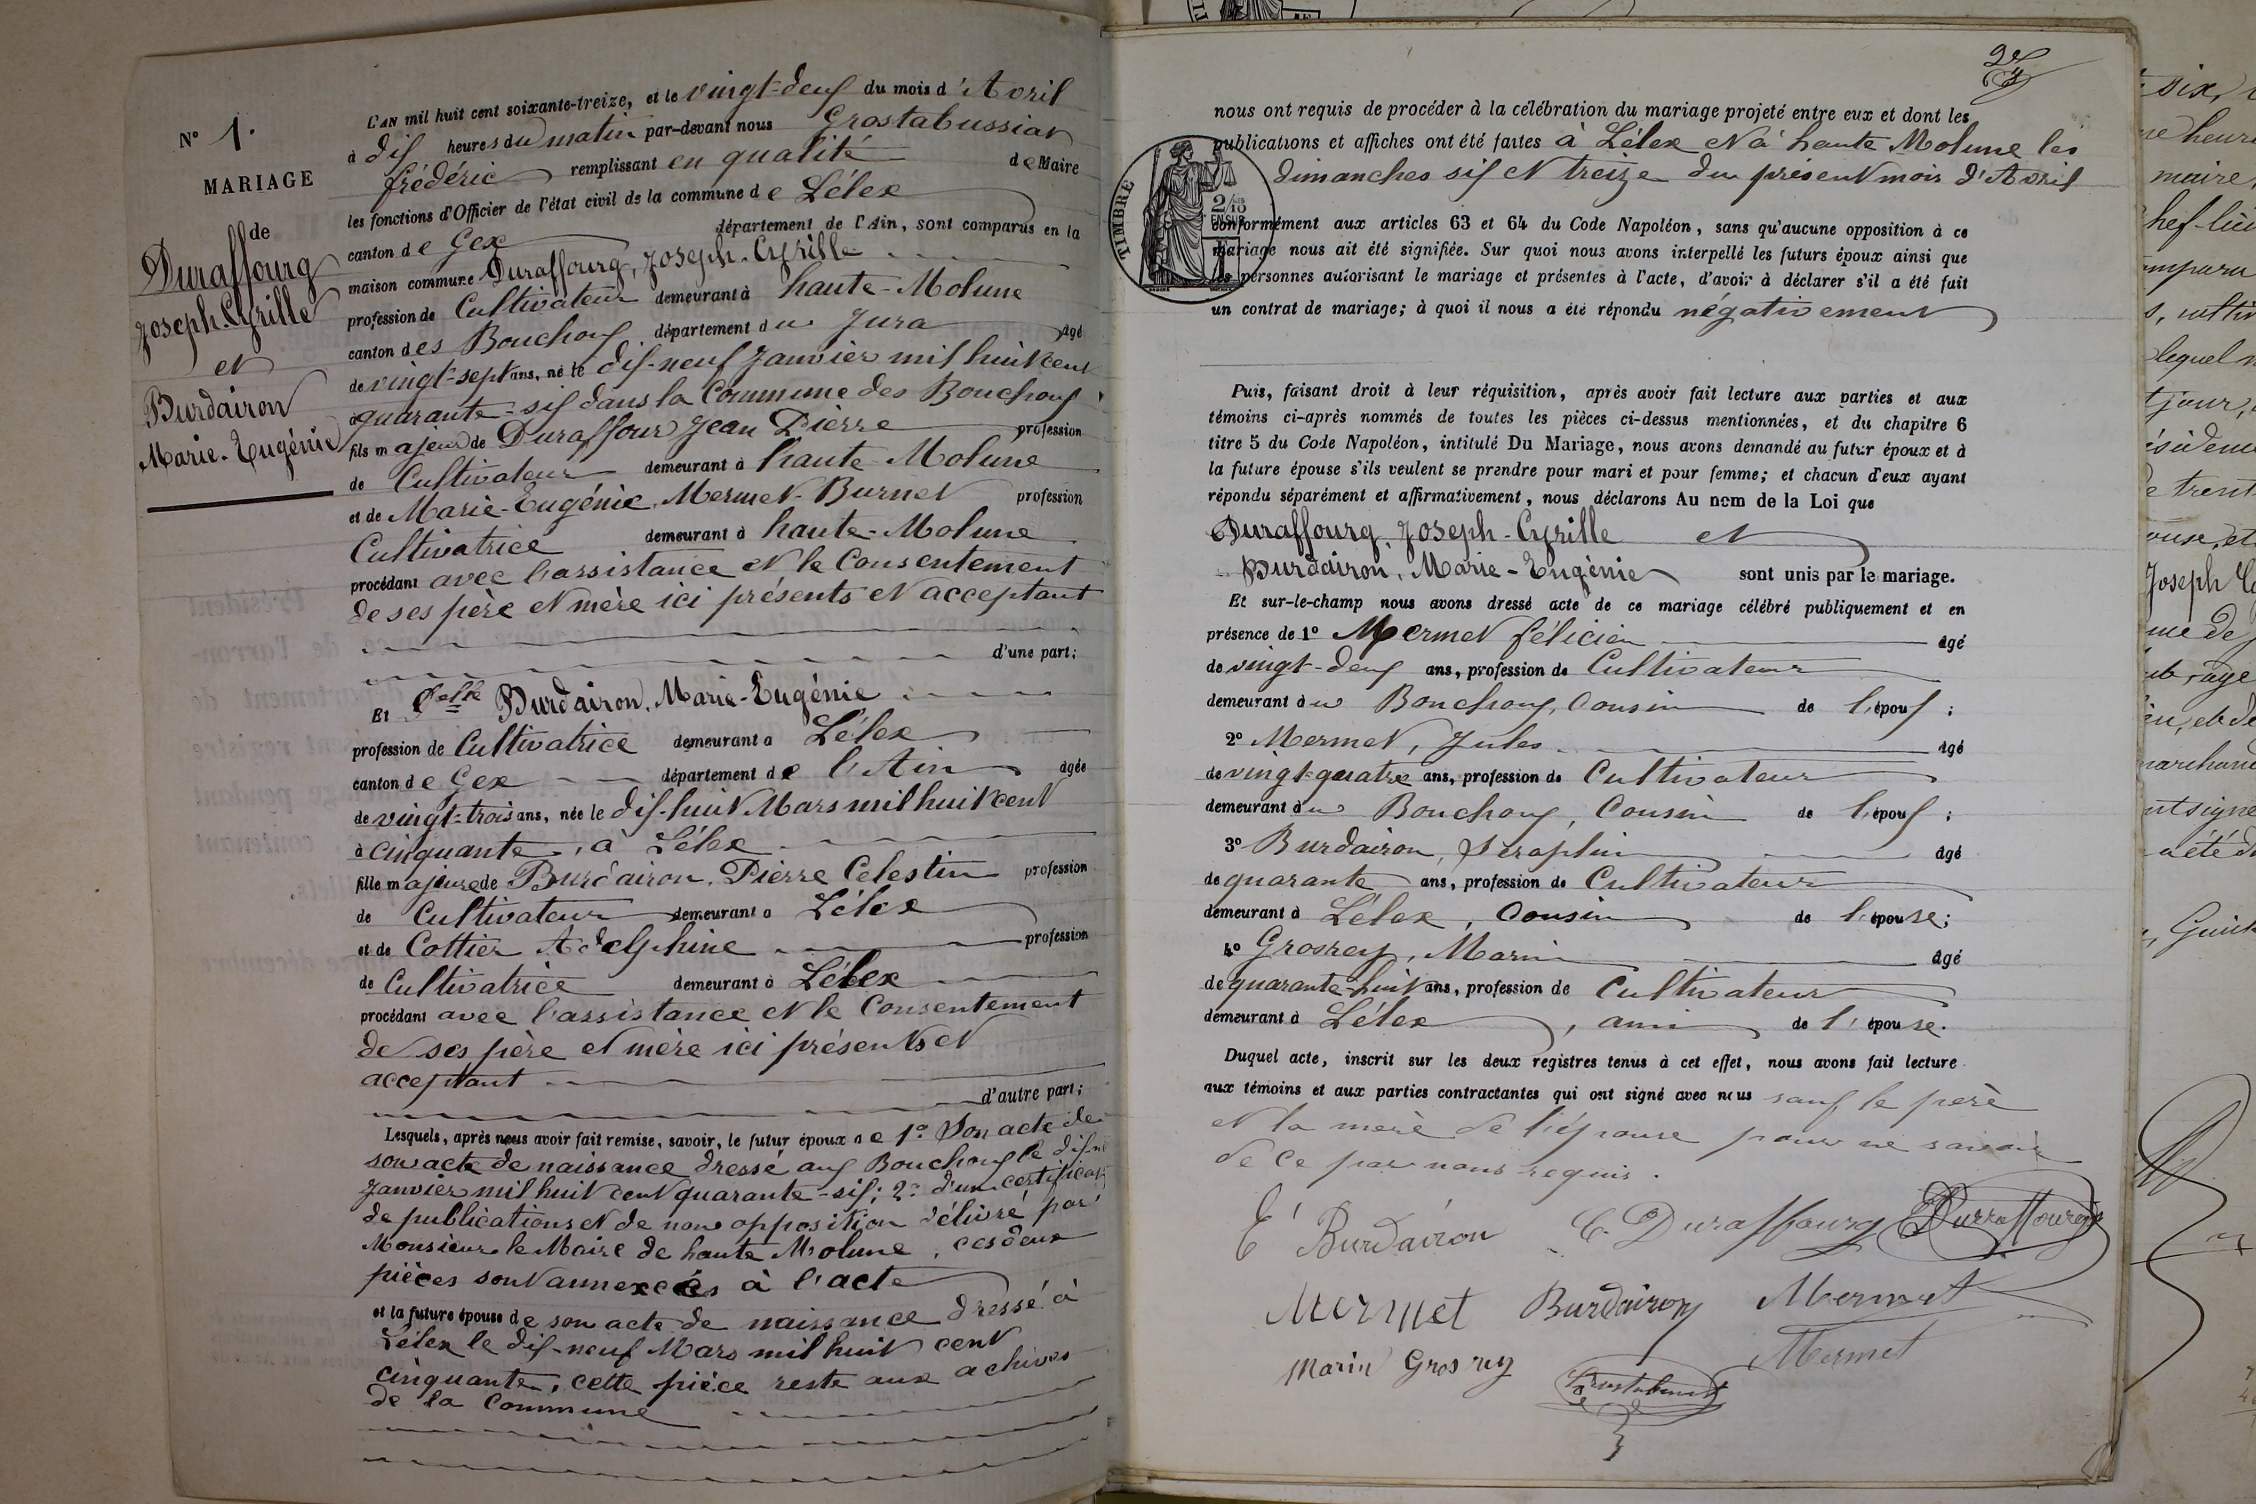 N° 1.
MARIAGE
de
Duraffourg
Joseph-Cyrille
et
Burdairon
Marie-Eugénie
L'AN mil huit cent soixante-treize, et le vingt-deux du mois d'Avril
à dix heures du matin par-devant nous Grostabussiat
frédéric remplissant en qualité de Maire
les fonctions d'Officier de l'état civil de la commune de Lélex
canton de Gex département de l'Ain, sont comparus en la
maison commune Duraffourg, Joseph-Cyrille
profession de Cultivateur demeurant à haute-Molune
canton des Bouchoux département du Jura âgé
de vingt-sept ans, né le dix-neuf Janvier mil huit cent
quarante-six dans la Commune des Bouchoux
fils majeur de Duraffour Jean Pierre profession
de Cultivateur demeurant à haute-Molune
et de Marie-Eugénie, Mermet-Burnet profession
Cultivatrice demeurant à haute-Molune
procédant avec l'assistance et le Consentement
de ses père et mère ici présents et acceptant
d'une part;
Et Delle Burdairon, Marie-Eugénie
profession de Cultivatrice demeurant à Lélex
canton de Gex département de l'Ain âgée
de vingt-trois ans, née le dix-huit Mars mil huit cent
à cinquante, à Lélex
fille majeure de Burdairon, Pierre Célestin profession
de Cultivateur demeurant à Lélex
et de Cottier Adelphine profession
de Cultivatrice demeurant à Lélex
procédant avec l'assistance et le Consentement
de ses père et mère ici présents et
acceptant
d'autre part;
Lesquels, après nous avoir fait remise, savoir, le futur époux de 1° Son acte de
son acte de naissance dressé aux Bouchoux le dix-n
Janvier mil huit cent quarante-six; 2° d'un certificat
de publications et de non opposition délivré par
Monsieur le Maire de haute Molune, ces deux
pièces sont annexées à l'acte
et la future épouse de son acte de naissance dressé à
Lélex le dix-neuf Mars mil huit cent
cinquante, cette pièce reste aux achives
de la Commune
nous ont requis de procéder à la célébration du mariage projeté entre eux et dont les
publications et affiches ont été faites à Lélex et à haute Molune les
dimanches six et treize du présent mois d'Avril
TIMBRE
2/10
EN SUS
conformément aux articles 63 et 64 du Code Napoléon, sans qu'aucune opposition à ce
mariage nous ait été signifiée. Sur quoi nous avons interpellé les futurs époux ainsi que
les personnes autorisant le mariage et présentes à l'acte, d'avoir à déclarer s'il a été fait
un contrat de mariage; à quoi il nous a été répondu négativement
Puis, faisant droit à leur réquisition, après avoir fait lecture aux parties et aux
témoins ci-après nommés de toutes les pièces ci-dessus mentionnées, et du chapitre 6
titre 5 du Code Napoléon, intitulé Du Mariage, nous avons demandé au futur époux et à
la future épouse s'ils veulent se prendre pour mari et pour femme; et chacun d'eux ayant
répondu séparément et affirmativement, nous déclarons Au nom de la Loi que
Duraffourg, Joseph-Cyrille et
Burdairon, Marie-Eugénie sont unis par le mariage.
Et sur-le-champ nous avons dressé acte de ce mariage célébré publiquement et en
présence de 1° Mermet félicien âgé
de vingt-deux ans, profession de Cultivateur
demeurant au Bouchoux, Cousin de l'époux;
2° Mermet, Jules âgé
de vingt-quatre ans, profession de Cultivateur
demeurant au Bouchoux, Cousin de l'époux;
3° Burdairon, Séraphin âgé
de quarante ans, profession de Cultivateur
demeurant à Lélex, Cousin de l'épouse;
4° Grosrey, Marin âgé
de quarante-huit ans, profession de Cultivateur
demeurant à Lélex, ami de l'épouse.
Duquel acte, inscrit sur les deux registres tenus à cet effet, nous avons fait lecture
aux témoins et aux parties contractantes qui ont signé avec nous sauf le père
et la mère de l'épouse pour ne savoir
de ce par nous requis.
E Burdairon C. Duraffourg Durraffourg
Mermet Burdairon Mermet
Marin Gros rey Mermet